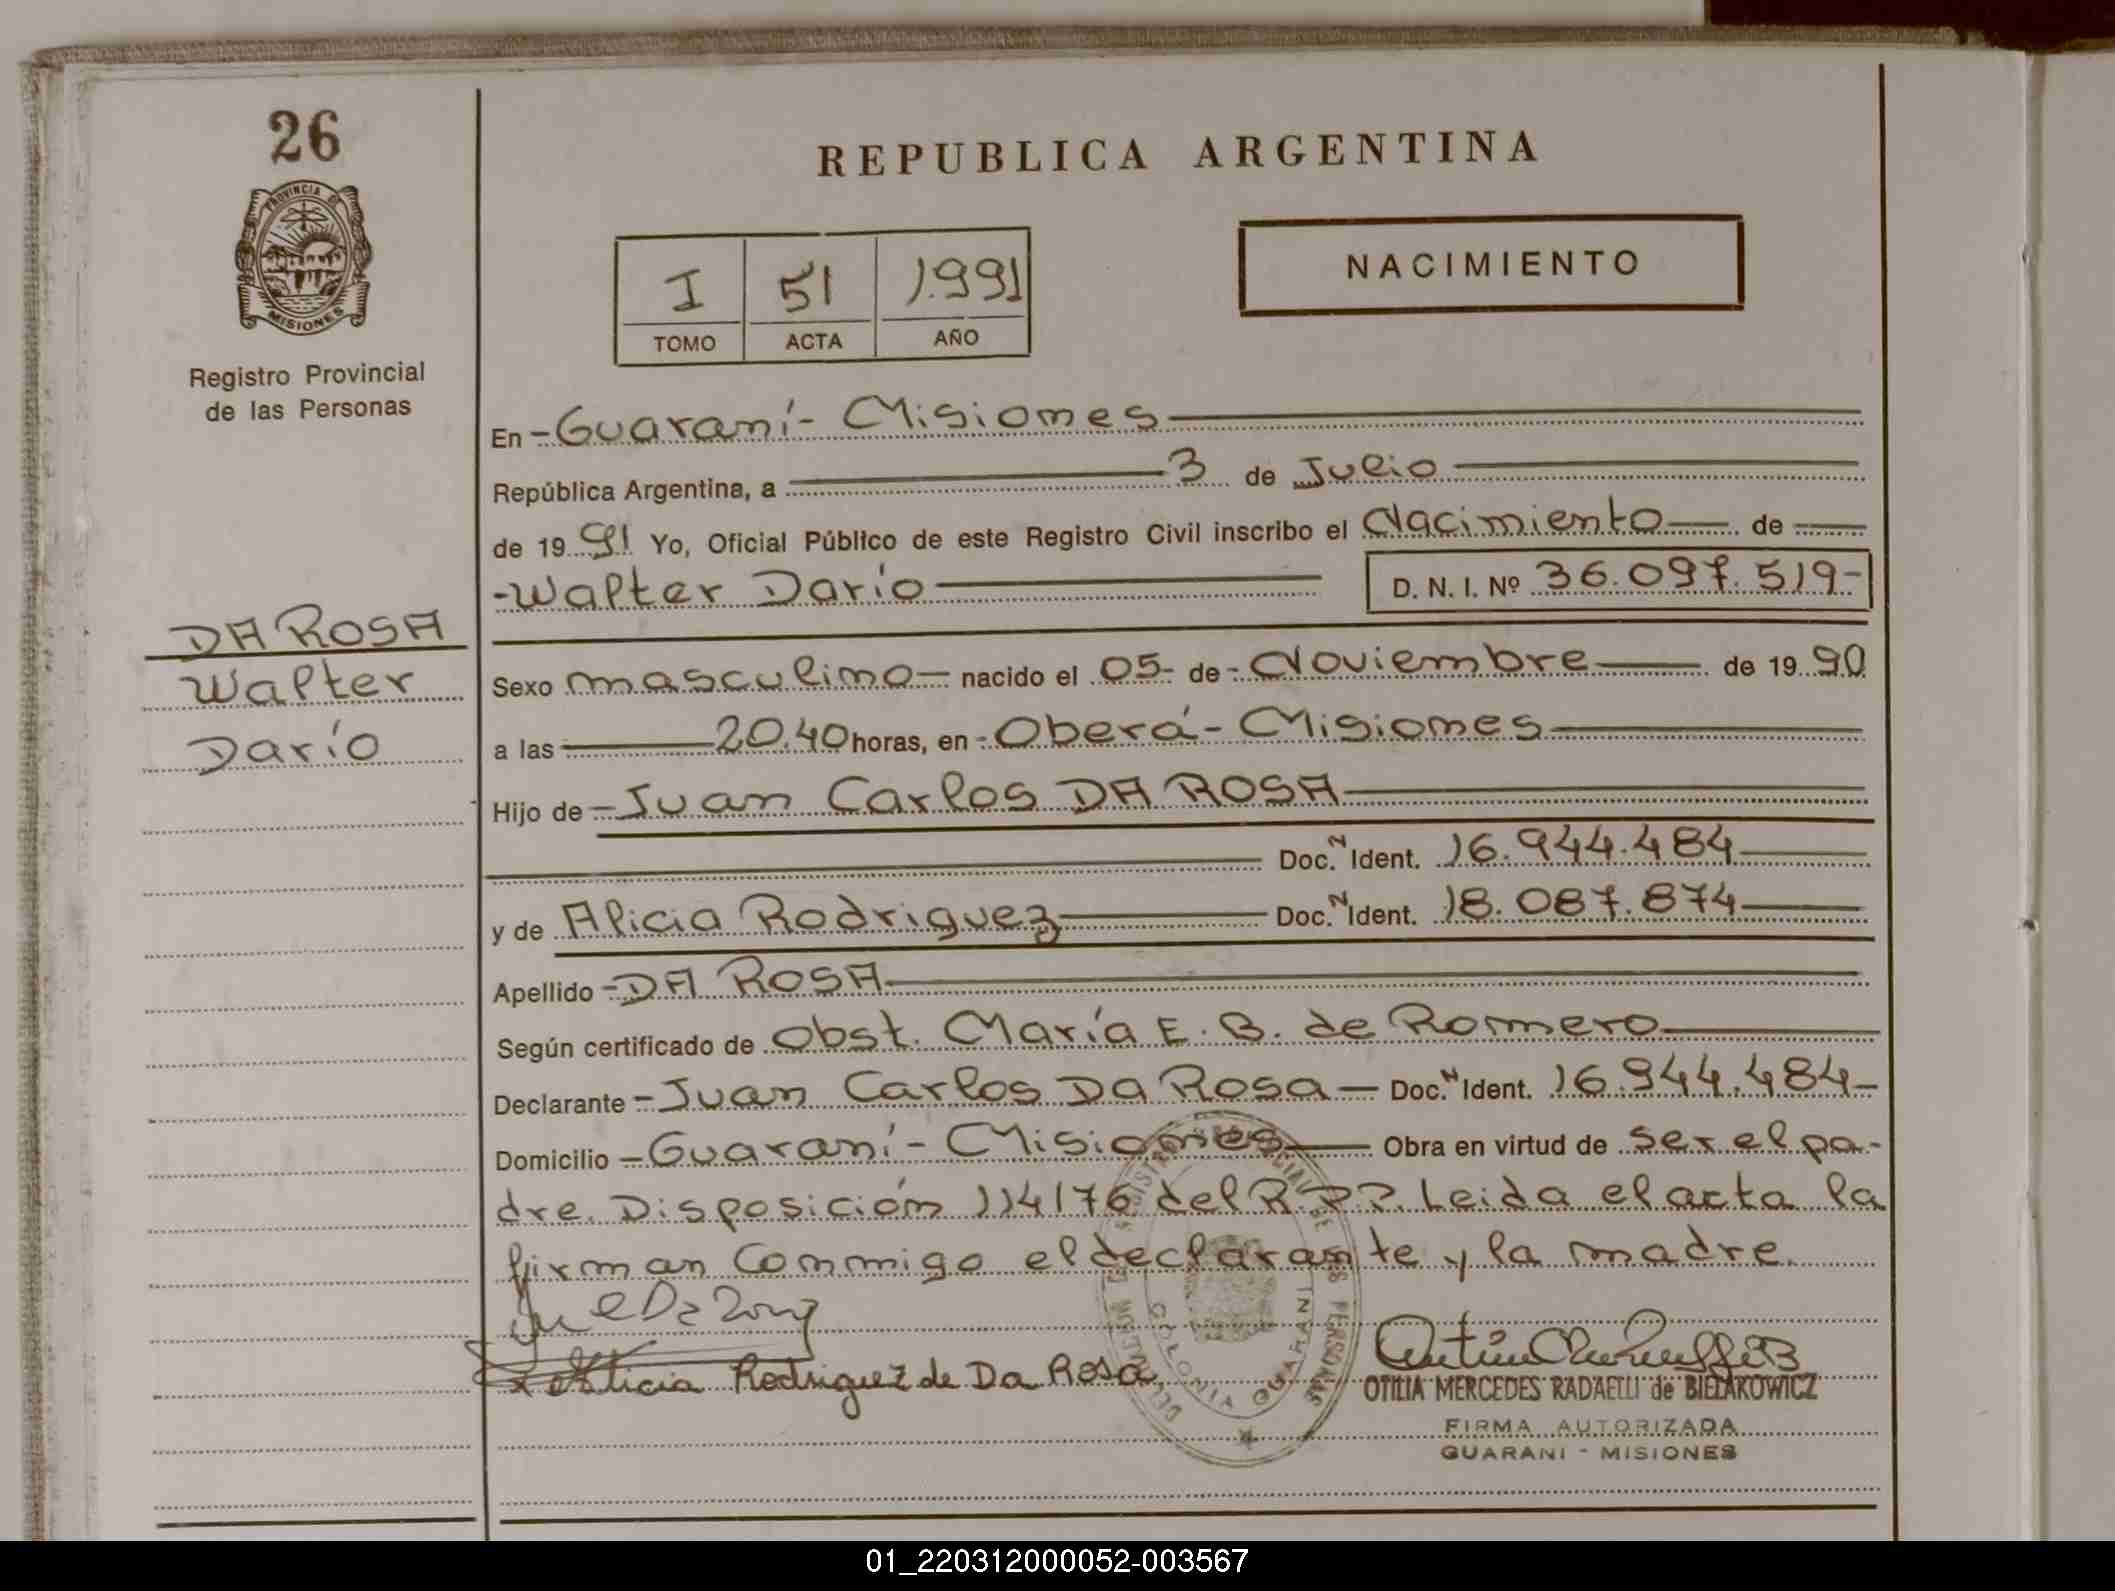 26
PROVINCIA DE
MISIONES
Registro Provincial
de las Personas
DA ROSA
Walter
Darío
REPUBLICA ARGENTINA
I 51 1.991
TOMO ACTA AÑO
NACIMIENTO
En -Guaraní- Misiones
República Argentina, a 3 de Julio
de 19 91 Yo, Oficial Público de este Registro Civil inscribo el Nacimiento de
-Walter Darío D. N. I. Nº 36.097.519-
Sexo masculino- nacido el 05- de -Noviembre de 19 90
a las 20.40 horas, en -Oberá- Misiones
Hijo de -Juan Carlos DA ROSA
Doc. N Ident. 16.944.484
y de Alicia Rodriguez Doc. N Ident. 18.087.874
Apellido -DA ROSA
Según certificado de Obst. María E. B. de Romero
Declarante -Juan Carlos Da Rosa- Doc. N Ident. 16.944.484-
Domicilio -Guaraní- Misiones Obra en virtud de ser el pa-
dre. Disposición 114/76 del R.P.P. Leida el acta la
firman conmigo el declarante y la madre.
Alicia Rodriguez de Da Rosa
COLONIA GUARANI
OTILIA MERCEDES RADAELLI de BIELAKOWICZ
FIRMA AUTORIZADA
GUARANI - MISIONES
01_220312000052-003567